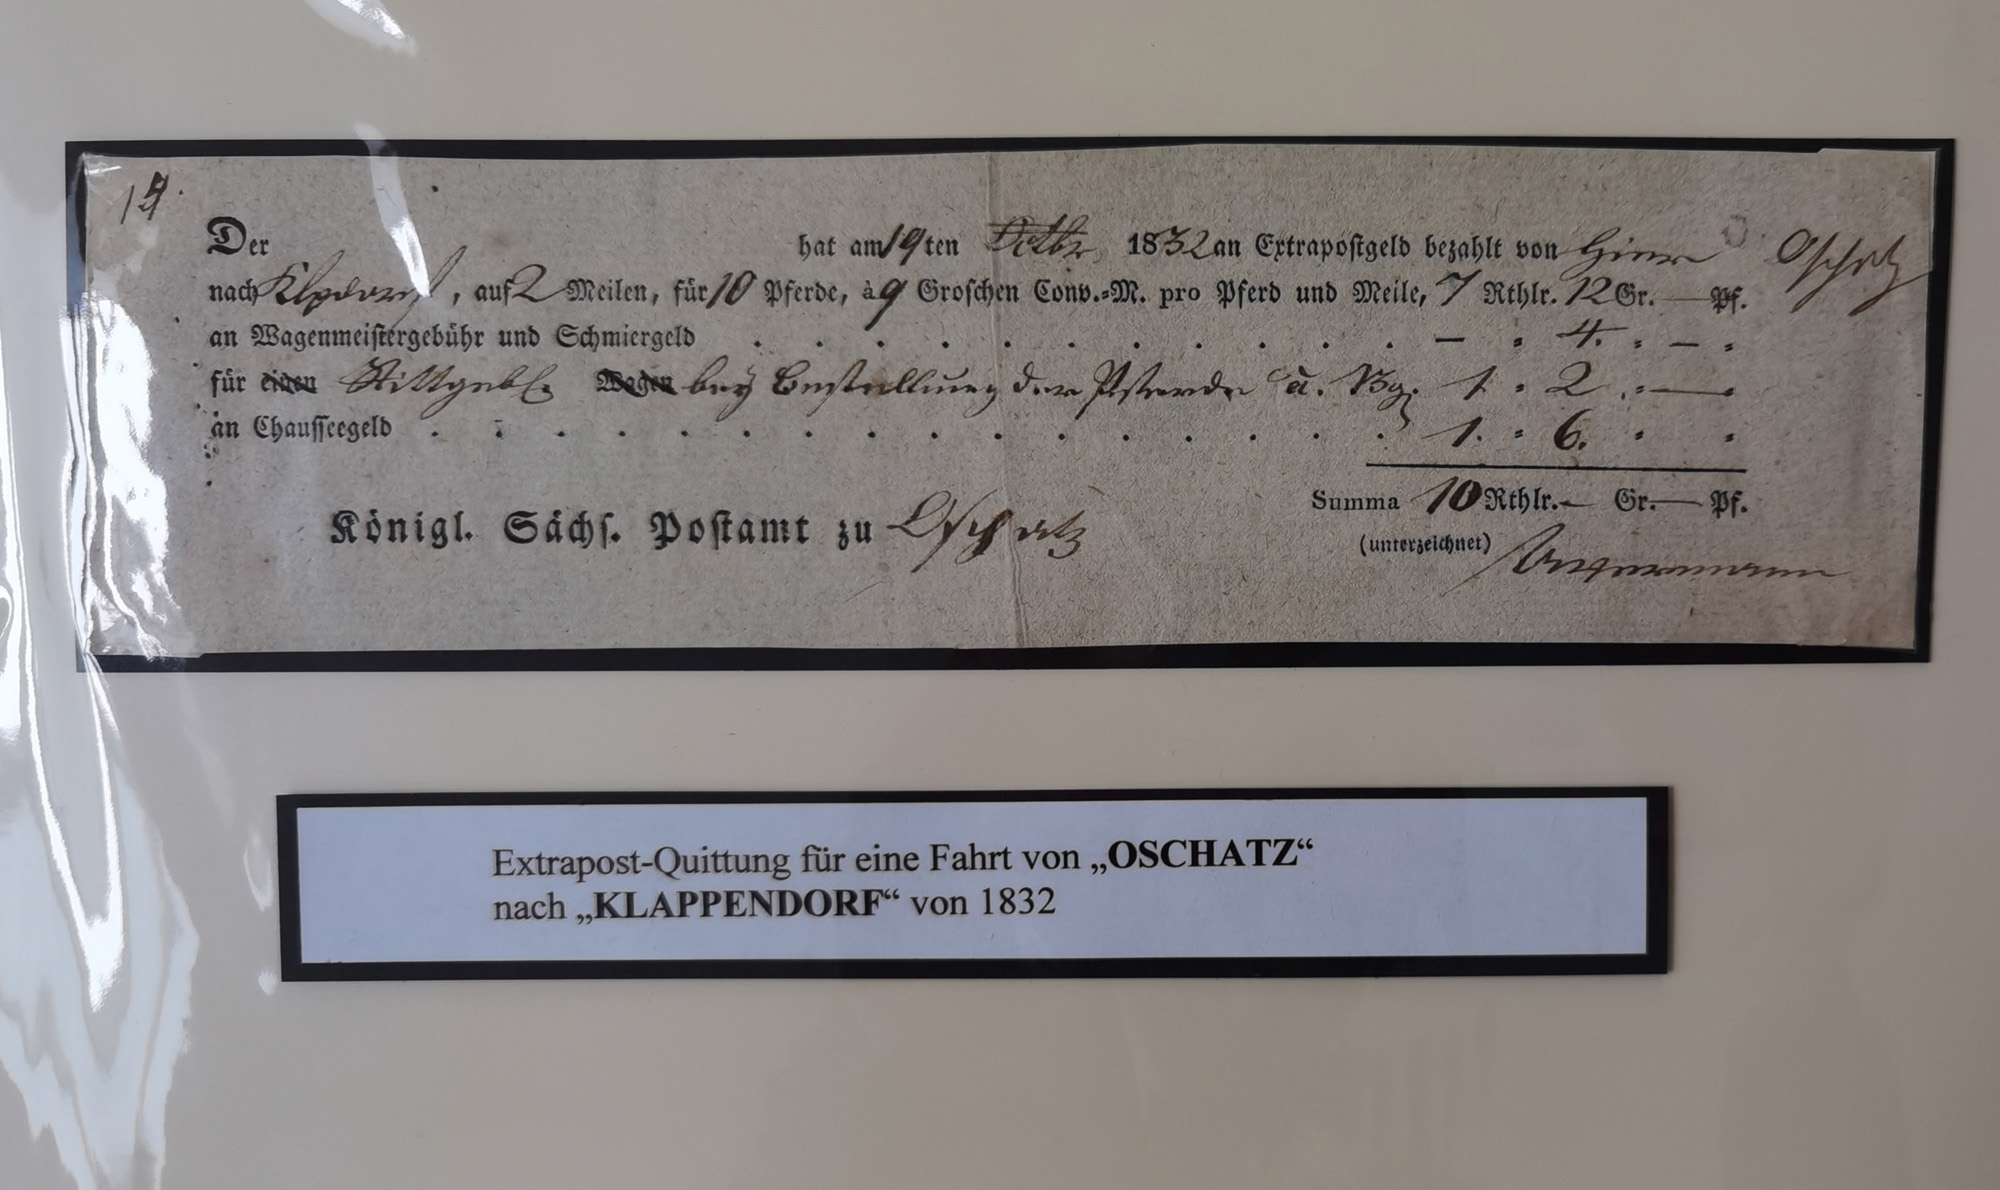 19.
Der hat am 19ten Octbr. 1832 an Extrapostgeld bezahlt von hier Oschatz
nach , auf 2 Meilen, für 10 Pferde, à 9 Groschen Conv.=M. pro Pferd und Meile, 7 Rthlr. 12 Gr. — Pf.
an Wagenmeistergebühr und Schmiergeld . . . . . . . . . . . — " 4. " — "
für einen Wagen bey Bestellung der Pferde à. 1 " 2 " — "
an Chausseegeld . . . . . . . . . . . . . . . . 1. " 6. " "
Summa 10 Rthlr. — Gr. — Pf.
Königl. Sächs. Postamt zu Oschatz
(unterzeichnet)
Extrapost-Quittung für eine Fahrt von „OSCHATZ“
nach „KLAPPENDORF“ von 1832